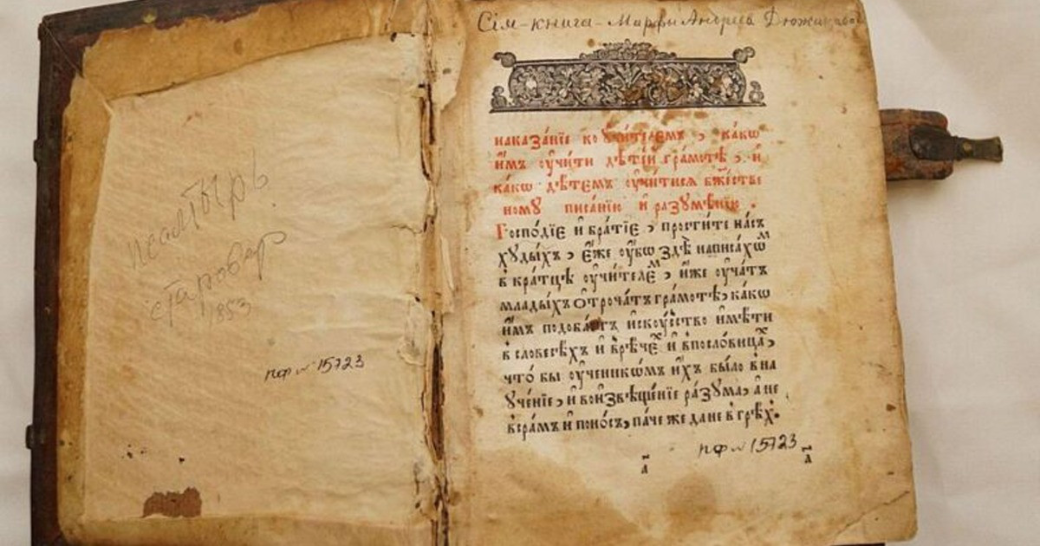 псалтырь
старовер
1853
пф № 15723
Сiя-книга-Марфы Андреев
наказа́нїе ко ᲂу҆чи́телємъ , ка́кѡ
и҆̀мъ ᲂу҆чи́ти дѣте́й гра́мотѣ , и҆
ка́кѡ дѣ́темъ ᲂу҆чи́тисѧ бж҃е́стве
ному писа́нїю и҆ разꙋмѣ́нїю .
Госпо́дїе и҆ бра́тїе , прости́те на́съ
хꙋды́хъ , є҆́же ᲂу҆́бѡ здѣ̀ написа́хѡⷨ
в кра́тцѣ ᲂу҆чи́телеⷨ , и҆̀же ᲂу҆ча́тъ
млады́хъ ѻ҆троча́тъ гра́мотѣ , ка́кѡ
и҆̀мъ подоба́етъ и҆скꙋ́сство и҆мѣ́ти
в словесѣ́хъ и҆ в рѣ́чеⷯ и҆ в посло́вицаⷯ ,
что́ бы ᲂу҆ченикѡ́мъ и҆́хъ бы́ло в на
ᲂу҆че́нїе , и҆ во и҆звѣще́нїе ра́зꙋма , а҆ не
в сра́мъ и҆ поно́съ , па́че же да не в грѣ́хъ .
пф № 15723
а҃